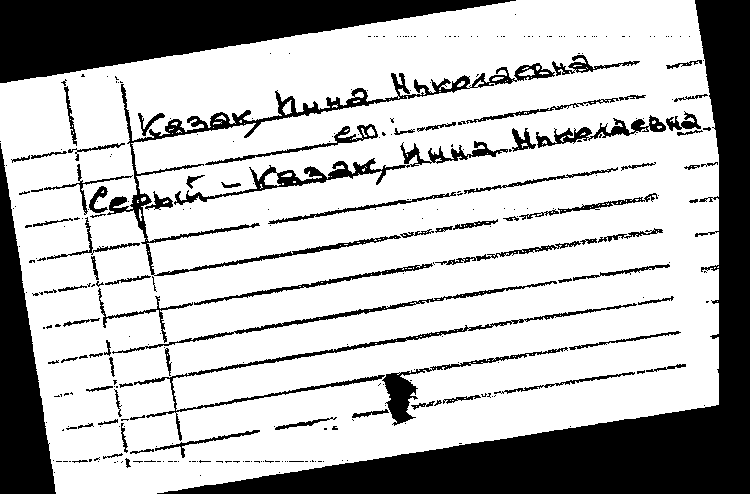 Казак, Инна Николаевна
ст.:
Серый - Казак, Инна Николаевна